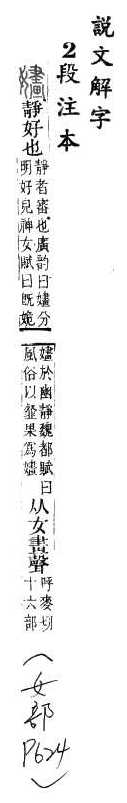 說文解字
2段注本
嫿靜好也
靜者審也廣韵曰嫿分
明好皃神女賦曰旣姽
嫿於幽靜魏都賦曰
風俗以韰果爲嫿
从女畫聲
呼麥切
十六部
(女部
P624)